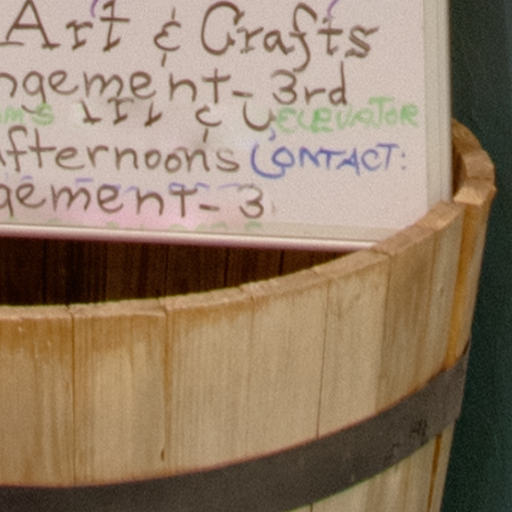 Art & Crafts
ngement - 3rd
ELEVATOR
fternoons CONTACT:
gement - 3